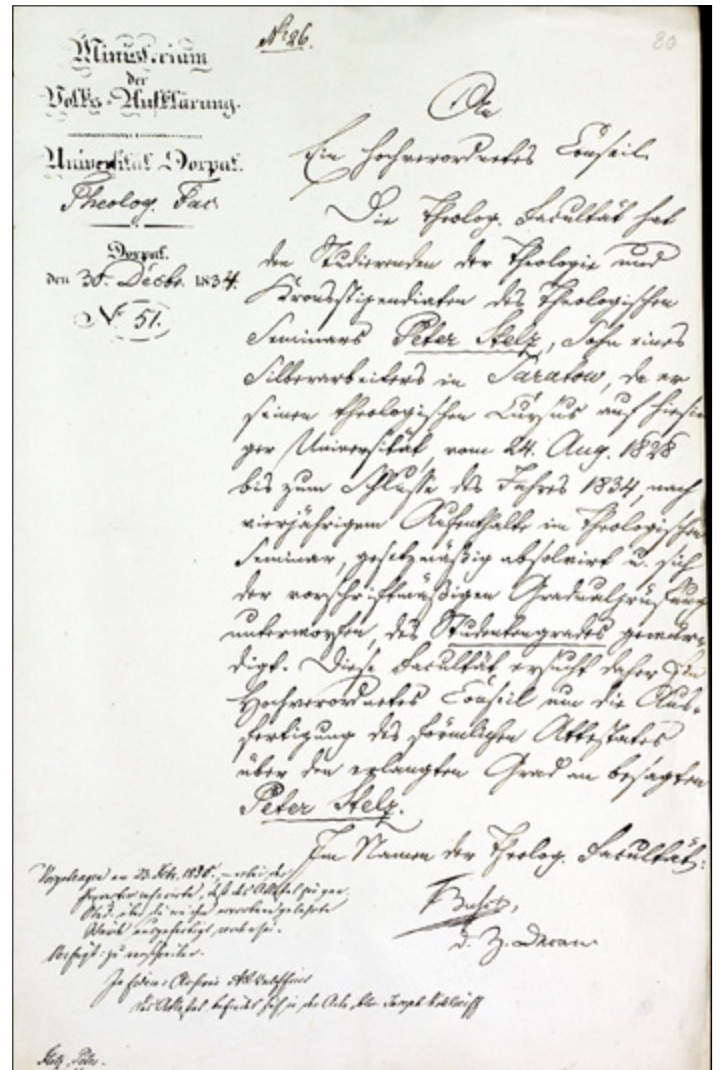 № 26.
80
Ministerium
der
Volks-Aufklärung.
Universität Dorpat.
Theolog. Fac.
Dorpat.
den 30. Decbr. 1834.
№ 51.
An
Ein Hochverordnetes Conseil.
Die Theolog. Facultät hat
den Studierenden der Theologie und
Kronsstipendiaten des Theologischen
Seminars Peter Stelz, Sohn eines
Silberarbeiters in Saratow, da er
seinen theologischen Cursus auf hiesi-
ger Universität, vom 24. Aug. 1828
bis zum Schlusse des Jahres 1834, nach
vierjährigem Aufenthalte im Theologischen
Seminar, gesetzmäßig absolvirt u. sich
der vorschriftmäßigen Gradualprüfung
unterworfen, des Studentengrades gewür-
digt. Diese Facultät ersucht daher Ein
Hochverordnetes Conseil um die Aus-
fertigung des förmlichen Attestates
über den erlangten Grad an besagten
Peter Stelz.
Im Namen der Theolog. Facultät:
Busch,
d. Z. Decan
Vorgetragen am 23. 1835.
Verfügt: zu
In fidem: Archivar
Das Attestat befindet sich in der Acte
Stelz, Peter.